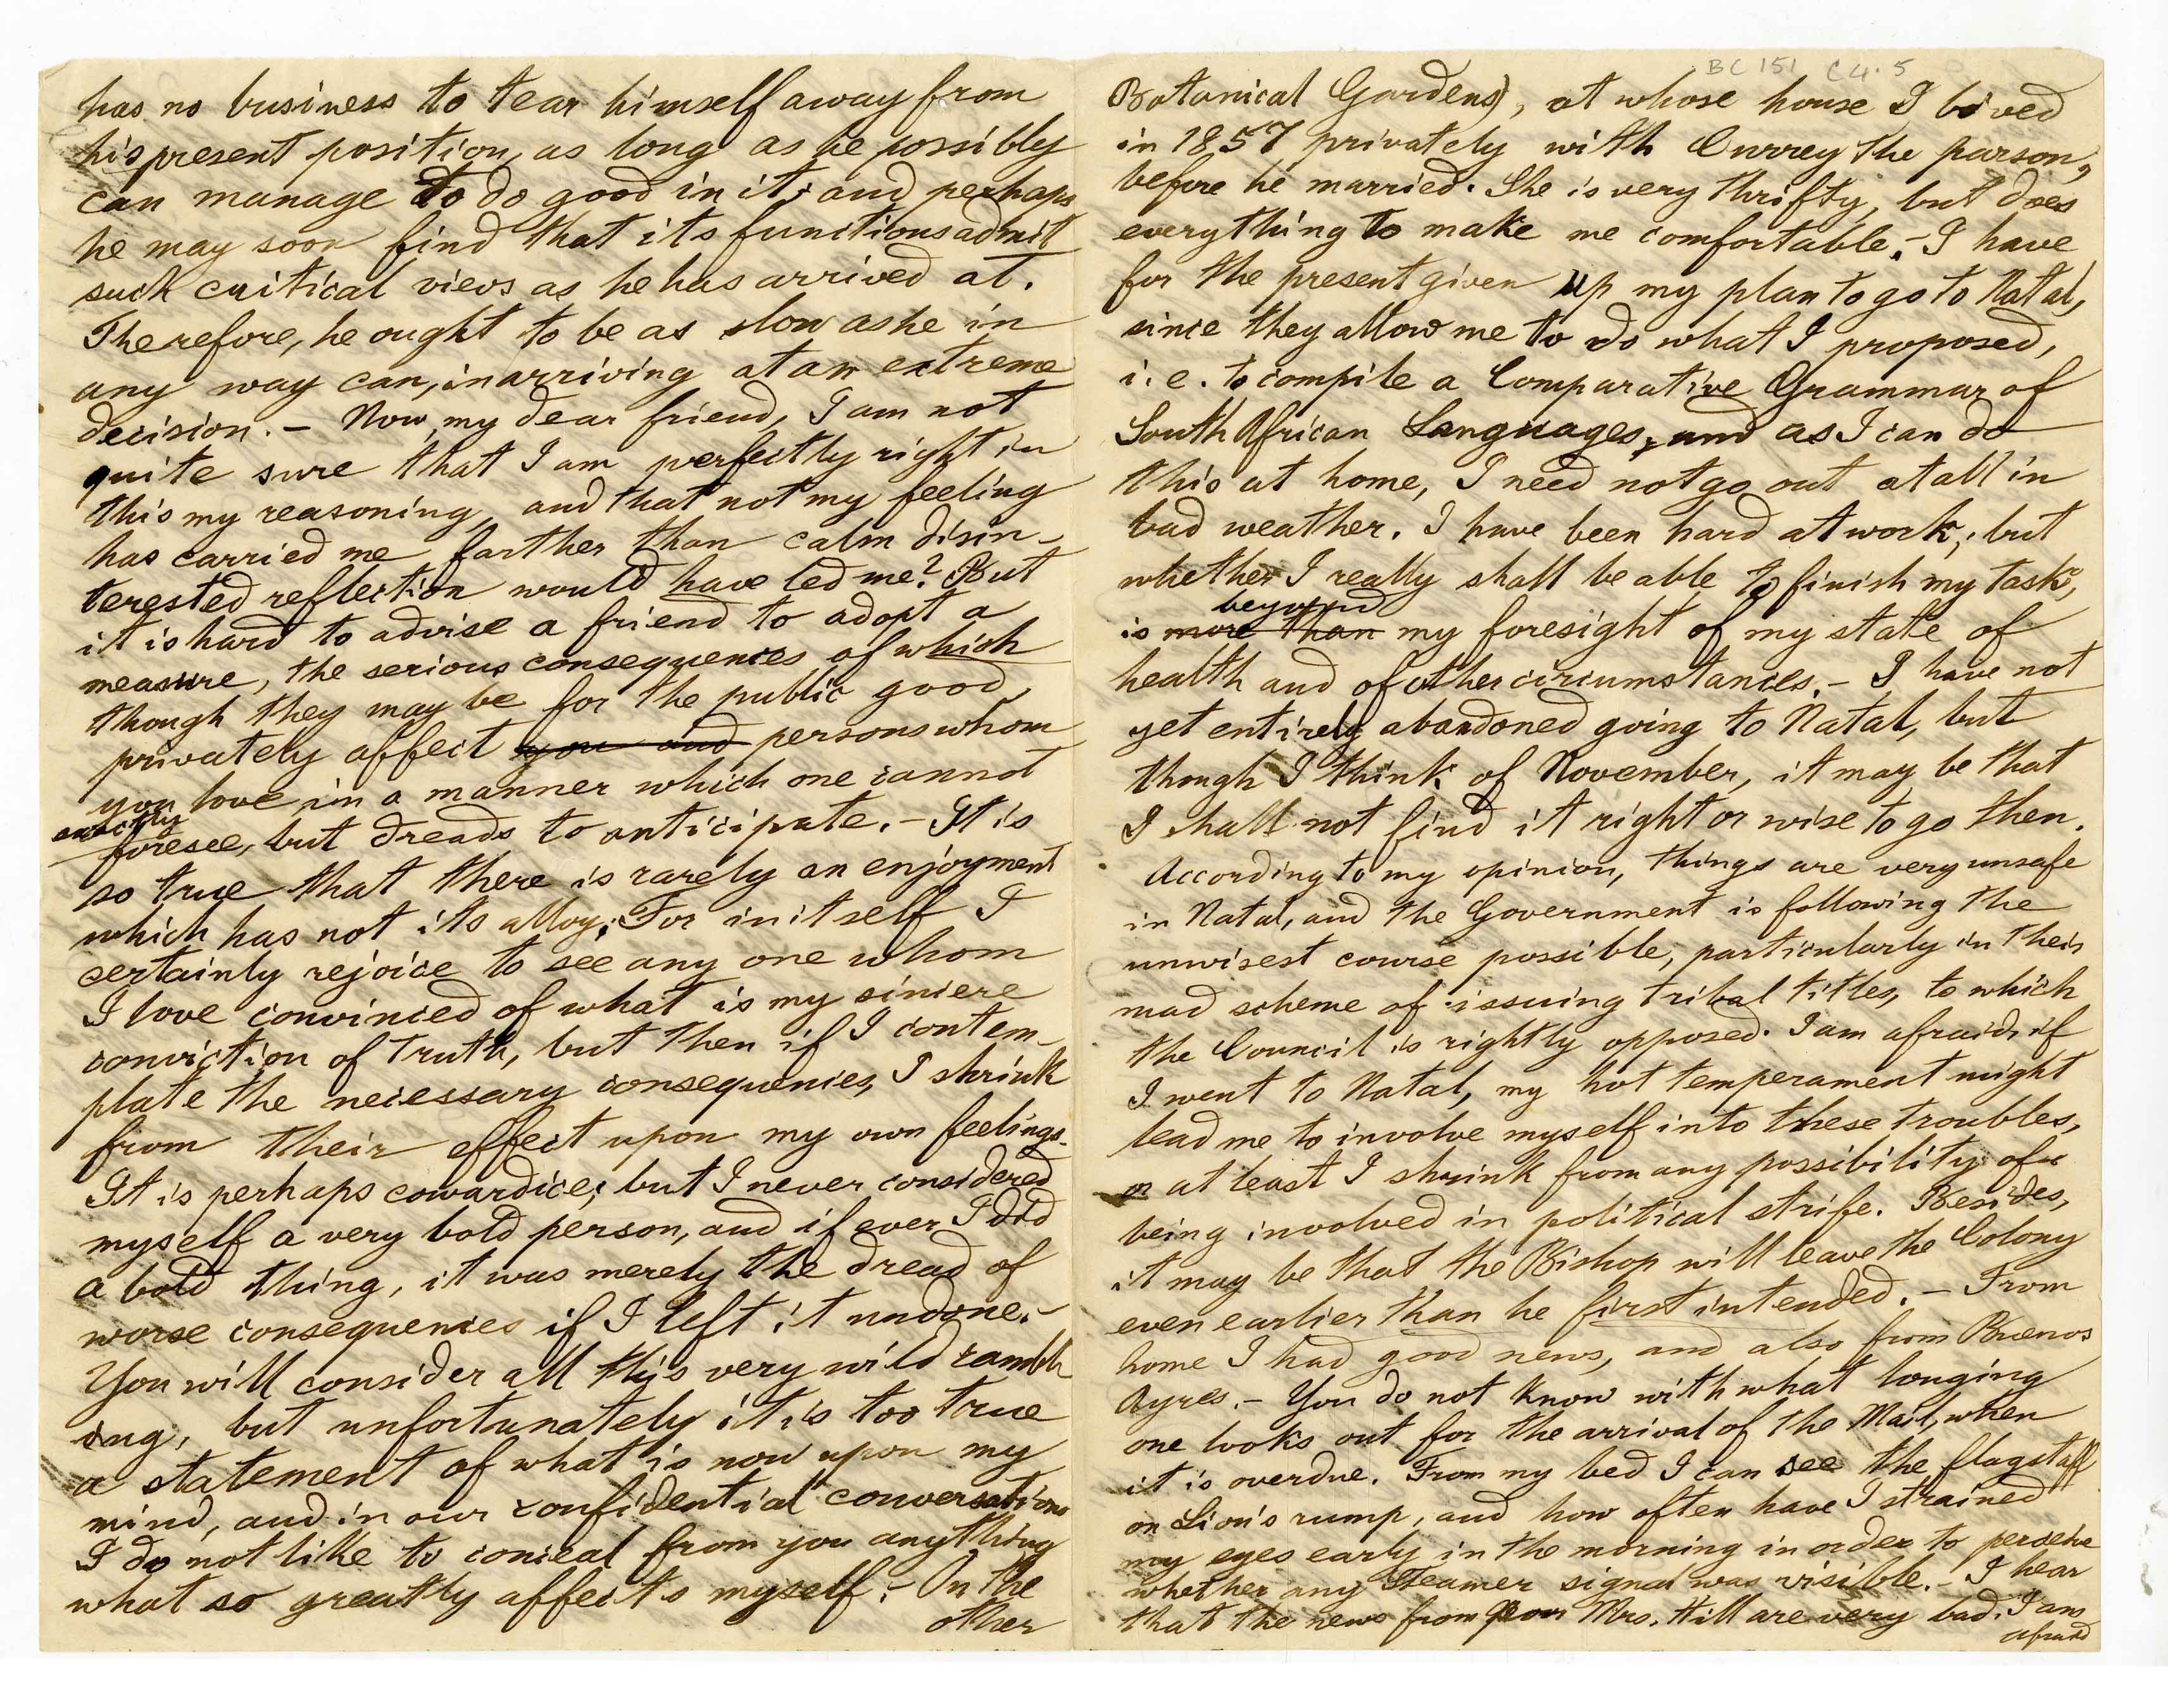 has no business to tear himself away from
his present position, as long as he possibly
can manage to do good in it; and perhaps
he may soon find that its functions admit
such critical views as he has arrived at.
Therefore, he ought to be as slow as he in
any way can, in arriving at an extreme
decision. – Now, my dear friend, I am not
quite sure that I am perfectly right in
this my reasoning, and that not my feeling
has carried me farther than calm disin-
terested reflection would have led me? But
it is hard to advise a friend to adopt a
measure, the serious consequences of which
though they may be for the public good,
privately affect you and persons whom
you love in a manner which one cannot
exactly
foresee, but dreads to anticipate. – It is
so true that there is rarely an enjoyment
which has not its alloy. For in itself I
certainly rejoice to see any one whom
I love convinced of what is my sincere
conviction of truth, but then if I contem-
plate the necessary consequences, I shrink
from their effect upon my own feelings.
It is perhaps cowardice; but I never considered
myself a very bold person, and if ever I did
a bold thing, it was merely the dread of
worse consequences if I left it undone. –
You will consider all this very wild rambl
ing, but unfortunately it is too true
a statement of what is now upon my
mind, and in our confidential conversations
I do not like to conceal from you anything
what so greatly affects myself. – On the
other
BC 151 C4.5
Botanical Gardens), at whose house I lived
in 1857 privately with Currey the parson,
before he married. She is very thrifty, but does
everything to make me comfortable. – I have
for the present given up my plan to go to Natal,
since they allow me to do what I proposed,
i.e. to compile a Comparative Grammar of
South African Languages, and as I can do
this at home, I need not go out at all in
bad weather. I have been hard at work; but
whether I really shall be able to finish my task,
beyond
is more than my foresight of my state of
health and of other circumstances. – I have not
yet entirely abandoned going to Natal, but
though I think of November, it may be that
I shall not find it right or wise to go then.
According to my opinion, things are very unsafe
in Natal, and the Government is following the
unwisest course possible, particularly in their
mad scheme of issuing tribal titles, to which
the Council is rightly opposed. I am afraid, if
I went to Natal, my hot temperament might
lead me to involve myself into these troubles,
or at least I shrink from any possibility of
being involved in political strife. Besides,
it may be that the Bishop will leave the Colony
even earlier than he first intended. – From
home I had good news, and also from Buenos
Ayres. – You do not know with what longing
one looks out for the arrival of the Mail, when
it is overdue. From my bed I can see the flagstaff
on Lion's rump, and how often have I strained
my eyes early in the morning in order to perceive
whether any Steamer signal was visible. – I hear
that the news from poor Mrs. Hill are very bad. I am
afraid